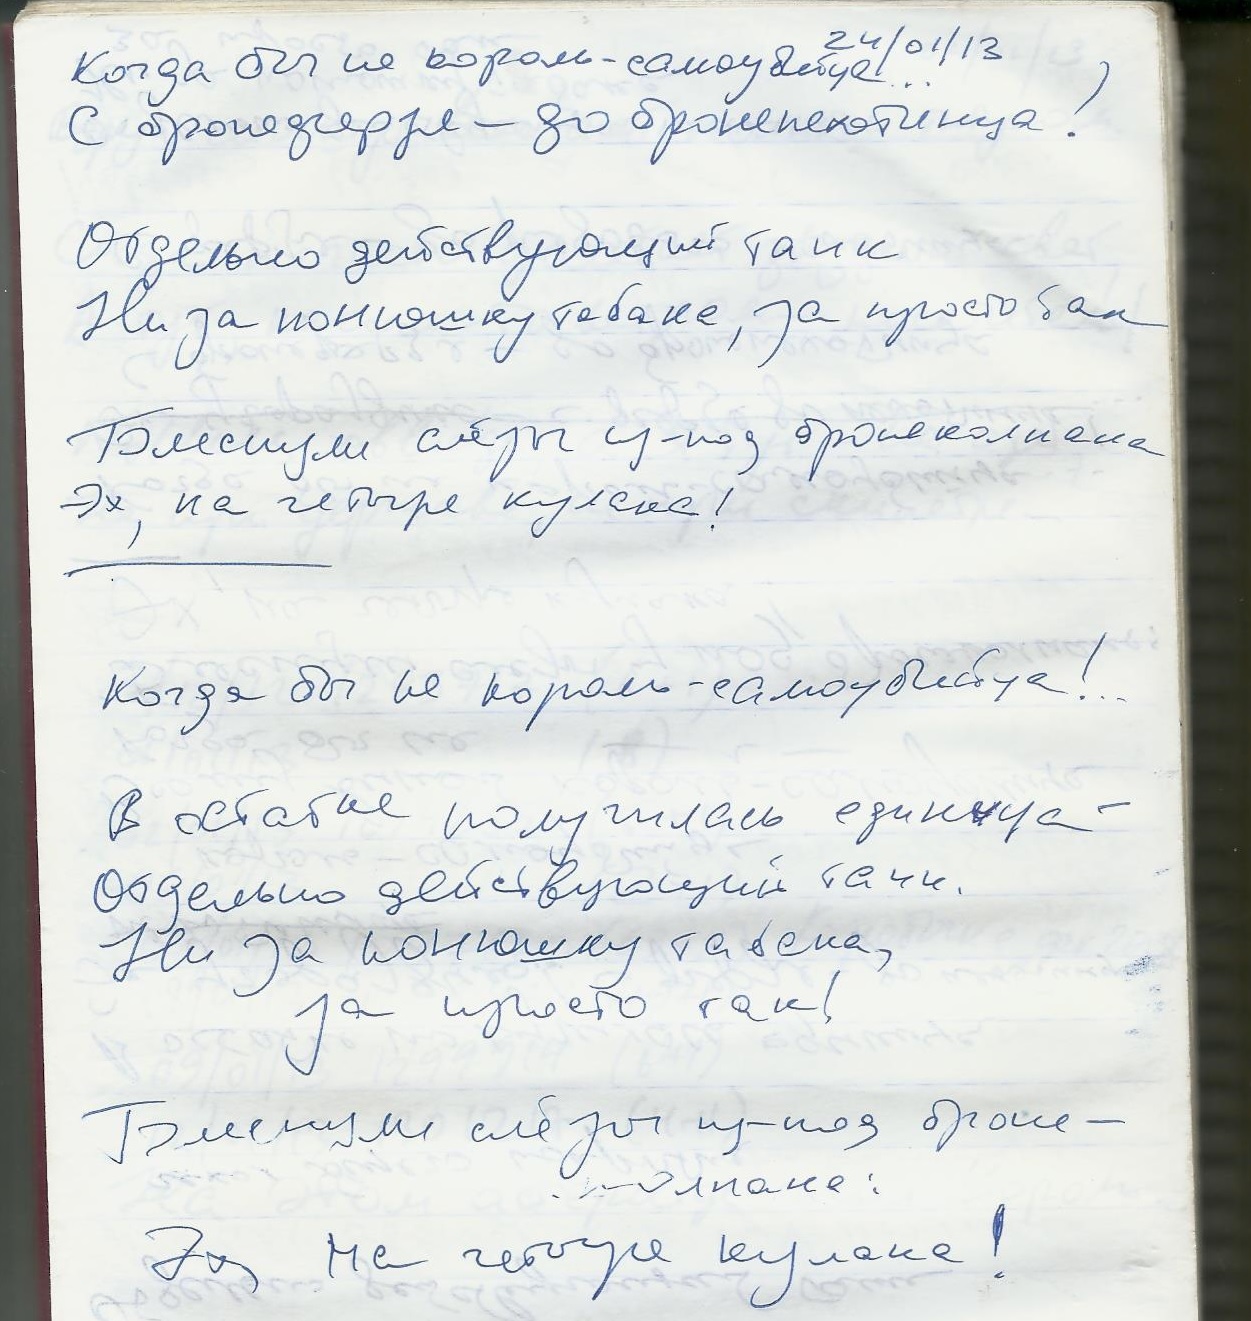 24/01/13
Когда бы не король-самоубийца!...
С бронедверзе – до бронепехотинца!
Отдельно действующий танк
Ни за понюшку табака, за просто так
Блеснули слёзы из-под бронеколпака
Эх, на четыре кулака!
Когда бы не король-самоубийца!...
В остатке получилась единица –
Отдельно действующий танк.
Ни за понюшку табака,
за просто так!
Блеснули слёзы из-под броне-
колпака:
Эх, на четыре кулака!